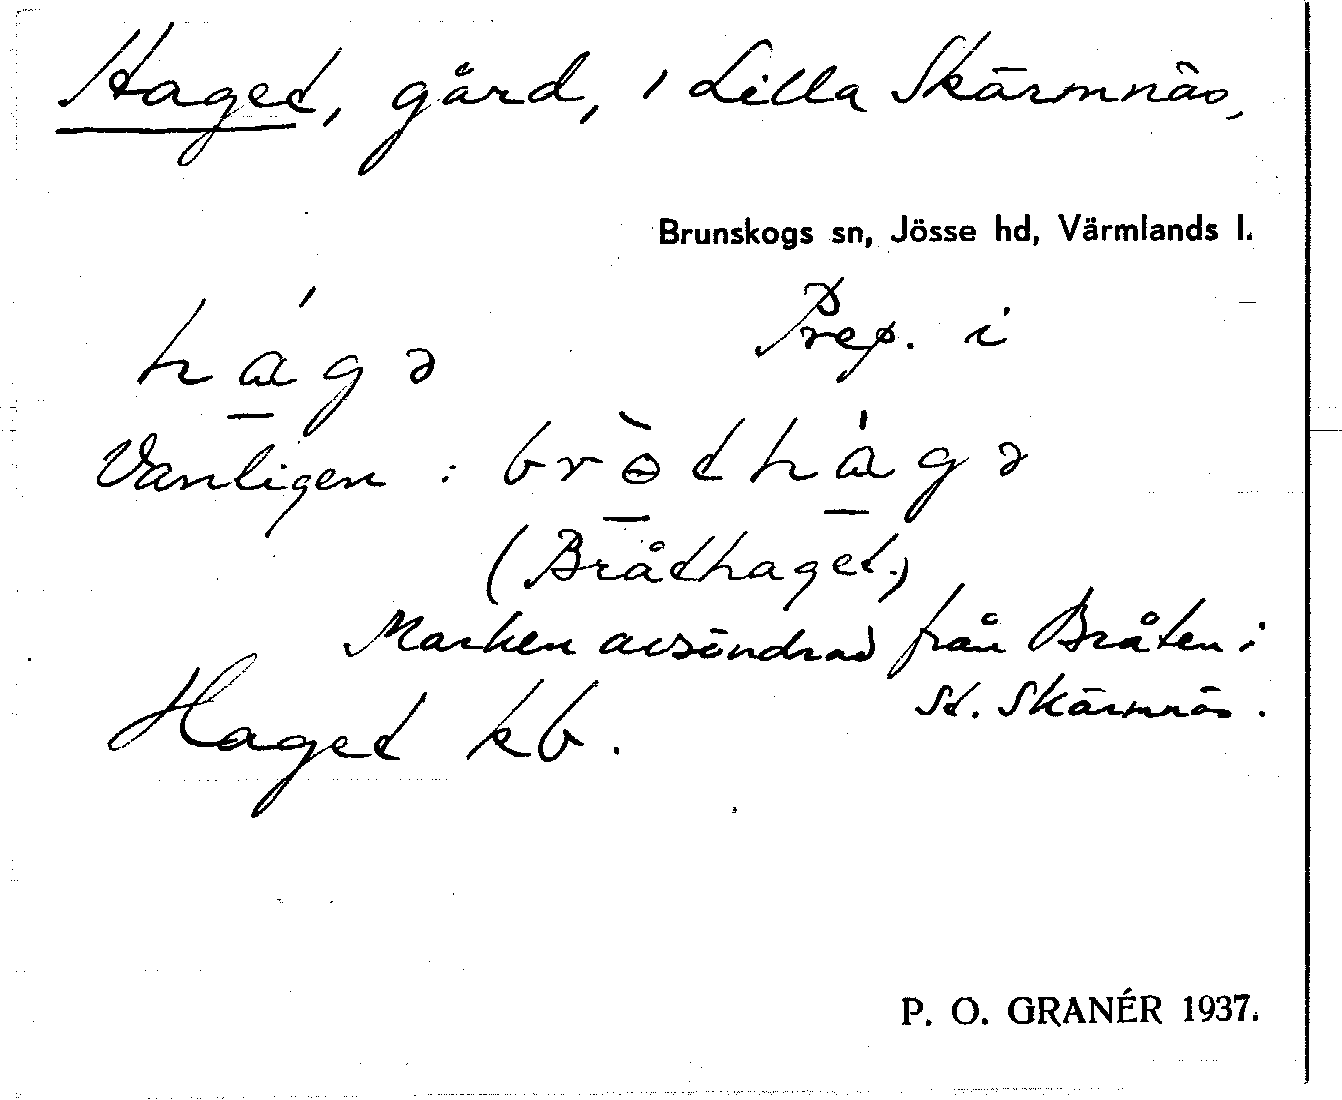 Haget, gård, i Lilla Skärmnäs,
Brunskogs sn, Jösse hd, Värmlands l.
há̱gə Prep. i
Vanligen : brɵ̱̀thá̱gə
(Bråthaget.)
Marken avsöndrad från Bråten i
St. Skärmnäs.
Haget kb.
P. O. GRANÉR 1937.